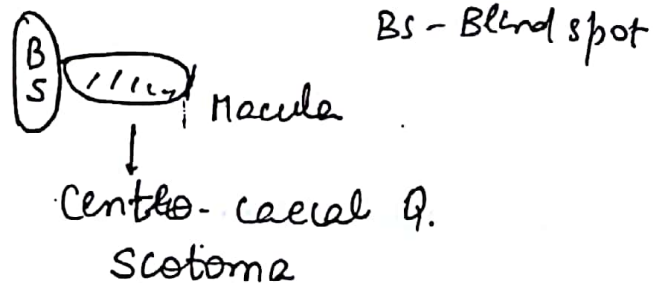 BS - Blind spot
B
S
Macula
Centro-caecal Q.
Scotoma